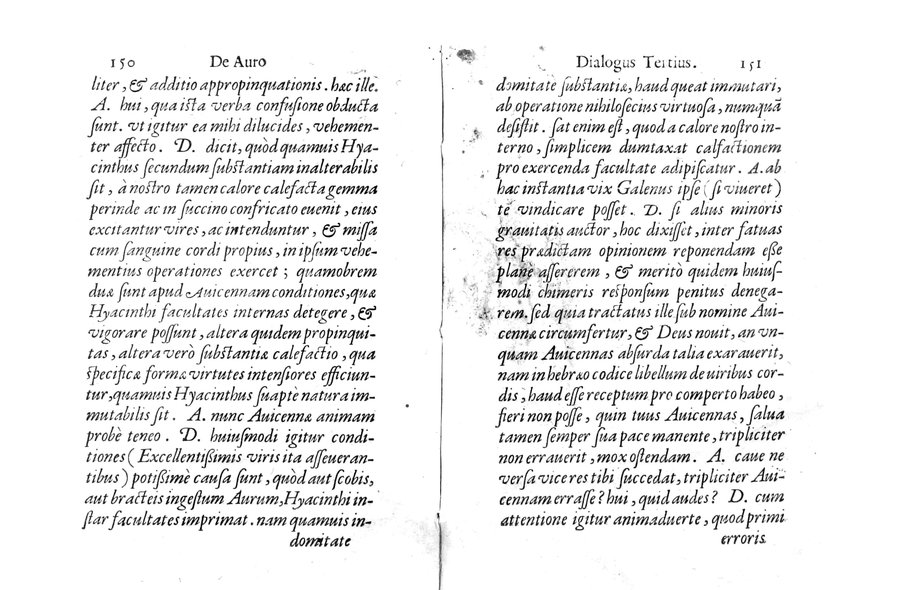 150 De Auro
liter, & additio appropinquationis. hæc ille.
A. hui, qua ista verba confusione obducta
sunt. vt igitur ea mihi dilucides, vehemen-
ter affecto. D. dicit, quòd quamuis Hya-
cinthus secundum substantiam inalterabilis
sit, à nostro tamen calore calefacta gemma
perinde ac in succino confricato euenit, eius
excitantur vires, ac intenduntur, & missa
cum sanguine cordi propius, in ipsum vehe-
mentius operationes exercet; quamobrem
duæ sunt apud Auicennam conditiones, quæ
Hyacinthi facultates internas detegere, &
vigorare possunt, altera quidem propinqui-
tas, altera verò substantiæ calefactio, qua
specificæ formæ virtutes intensiores efficiun-
tur, quamuis Hyacinthus suaptè natura im-
mutabilis sit. A. nunc Auicennæ animam
probè teneo. D. huiusmodi igitur condi-
tiones (Excellentissimis viris ita asseueran-
tibus) potissimè causa sunt, quòd aut scobis,
aut bracteis ingestum Aurum, Hyacinthi in-
star facultates imprimat. nam quamuis in-
domitate
Dialogus Tertius. 151
domitatè substantiæ, haud queat immutari,
ab operatione nihilosecius virtuosa, numquã
desistit. sat enim est, quod a calore nostro in-
terno, simplicem dumtaxat calfactionem
pro exercenda facultate adipiscatur. A. ab
hac instantia vix Galenus ipse (si viueret)
tè vindicare posset. D. si alius minoris
grauitatis auctor, hoc dixisset, inter fatuas
res prædictam opinionem reponendam esse
planè assererem, & meritò quidem huius-
modi chimeris responsum penitus denega-
rem. sed quia tractatus ille sub nomine Aui-
cennæ circumfertur, & Deus nouit, an vn-
quam Auicennas absurda talia exarauerit,
nam in hebræo codice libellum de uiribus cor-
dis, haud esse receptum pro comperto habeo,
fieri non posse, quin tuus Auicennas, salua
tamen semper sua pace manente, tripliciter
non errauerit, mox ostendam. A. caue ne
versa vice res tibi succedat, tripliciter Aui-
cennam errasse? hui, quid audes? D. cum
attentione igitur animaduerte, quod primi
erroris